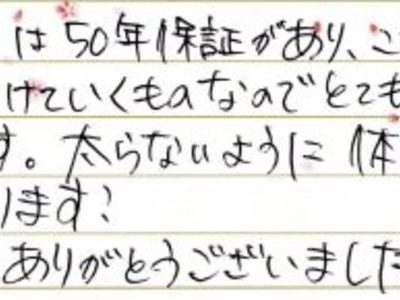 は50年保証があり、こ
けていくものなのでとても
す。太らないように体
ります！
ありがとうございました